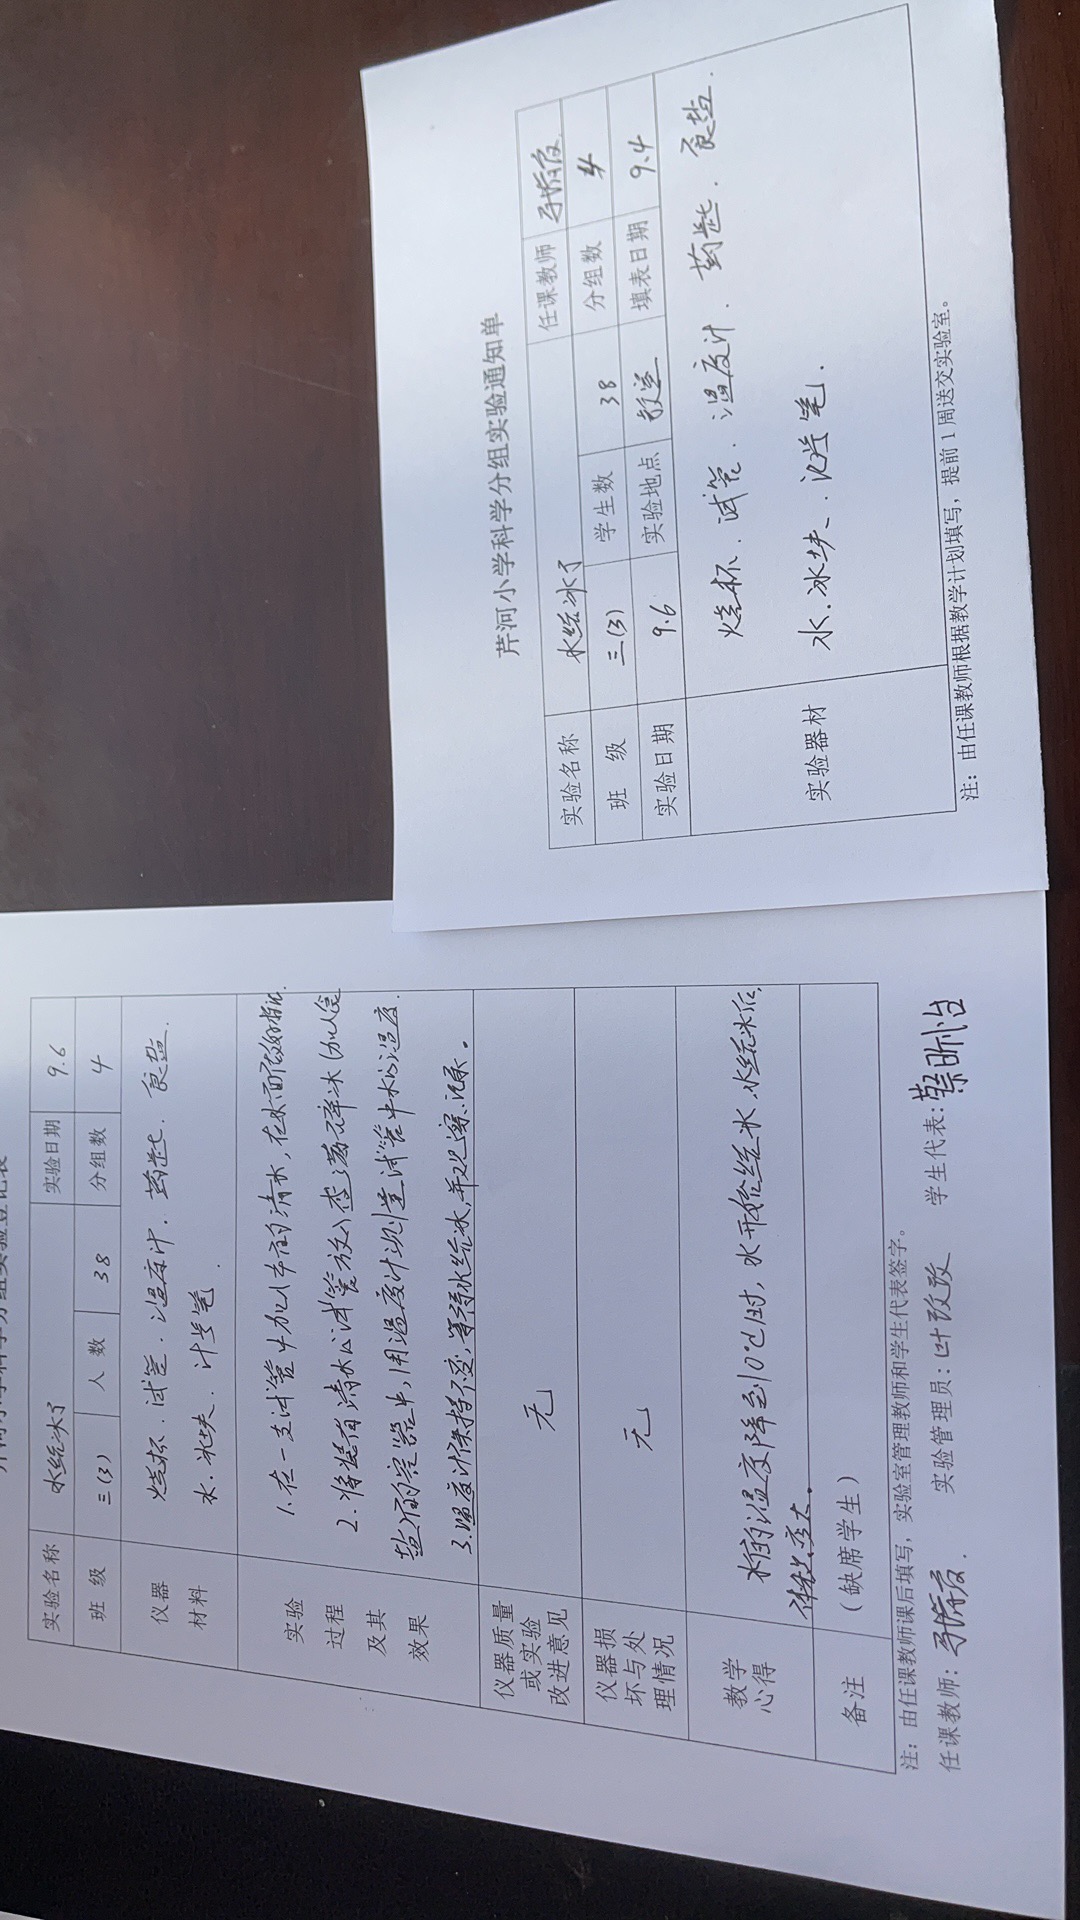 实验名称 水结冰了 实验日期 9.6
班 级 三(3) 人 数 38 分组数 4
仪器 材料 烧杯、试管、温度计、药匙、食盐、
水、冰块、记号笔.
实验 过程 及其 效果
1.在一支试管中加入的清水,在水面做好标记.
2.将装有清水的试管放入盛满碎冰(加入食
盐)的容器中,用温度计测量试管中水的温度.
3.温度计保持不变,等待水结冰,并观察记录。
仪器质量 或实验 改进意见 无
仪器损 坏与处 理情况 无
教学 心得 水的温度降到0℃时,水开始结冰,水结冰后,
体积变大.
备注 (缺席学生)
注:由任课教师课后填写,实验室管理教师和学生代表签字。
任课教师: 实验管理员:叶政政 学生代表:蔡昕怡
芹河小学科学分组实验通知单
实验名称 水结冰了 任课教师
班 级 三(3) 学生数 38 分组数 4
实验日期 9.6 实验地点 教室 填表日期 9.4
实验器材 烧杯、试管、温度计、药匙、食盐.
水、冰块、记号笔.
注:由任课教师根据教学计划填写,提前1周送交实验室。